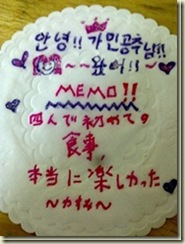 안녕!! 가민공주님!!
~~왔어!!~~
MEMO!!
四人で初めての
食事,
本当に楽しかった